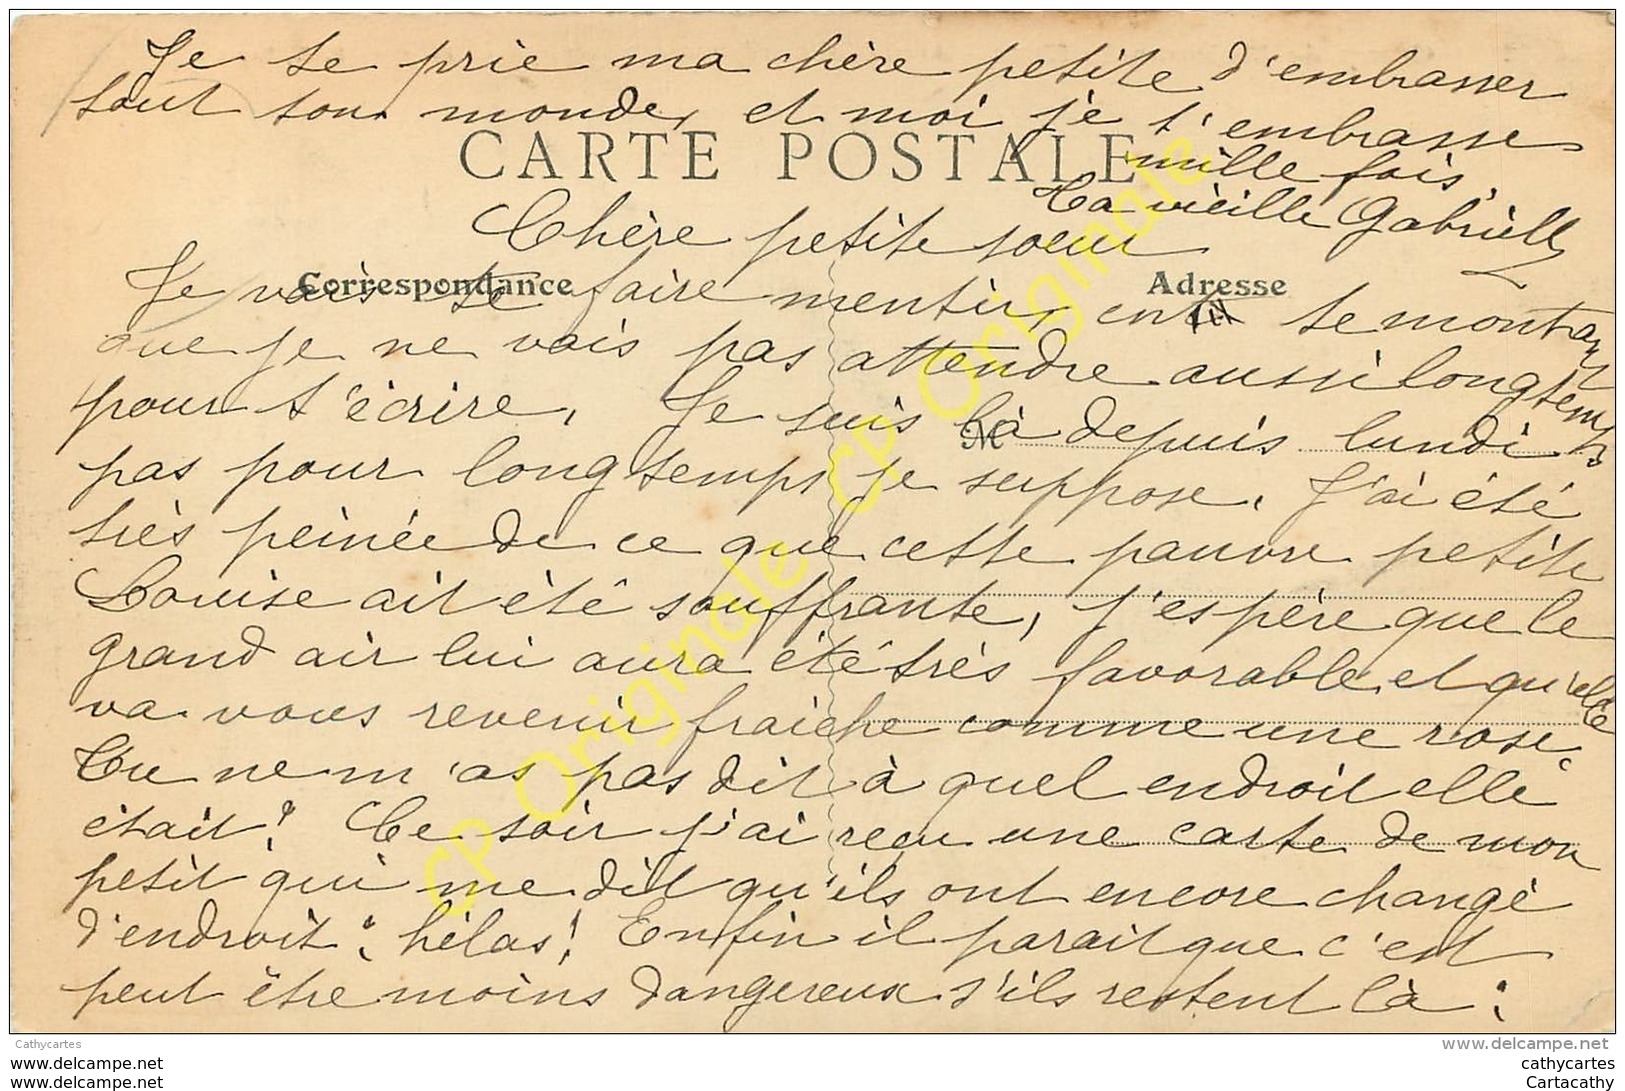 Je te prie ma chère petite d'embrasser
tout ton monde, et moi je t'embrasse
mille fois.
Ta vieille Gabrielle
CARTE POSTALE
Chère petite soeur
Correspondance
Adresse
Je vais te faire mentir, en te montrant
que je ne vais pas attendre aussi longtemps
pour t'écrire. Je suis là depuis lundi
pas pour longtemps je suppose. J'ai été
très peinée de ce que cette pauvre petite
Louise ait été souffrante, j'espère que le
grand air lui aura été très favorable et qu'elle
va vous revenir fraiche comme une rose.
Tu ne m'as pas dit à quel endroit elle
était? Ce soir j'ai reçu une carte de mon
petit qui me dit qu'ils ont encore changé
d'endroit; hélas! Enfin il parait que c'est
peut être moins dangereux s'ils restent là;
CP Originale CP Originale CP Originale
Cathycartes
www.delcampe.net
www.delcampe.net
cathycartes
www.delcampe.net
Cartacathy